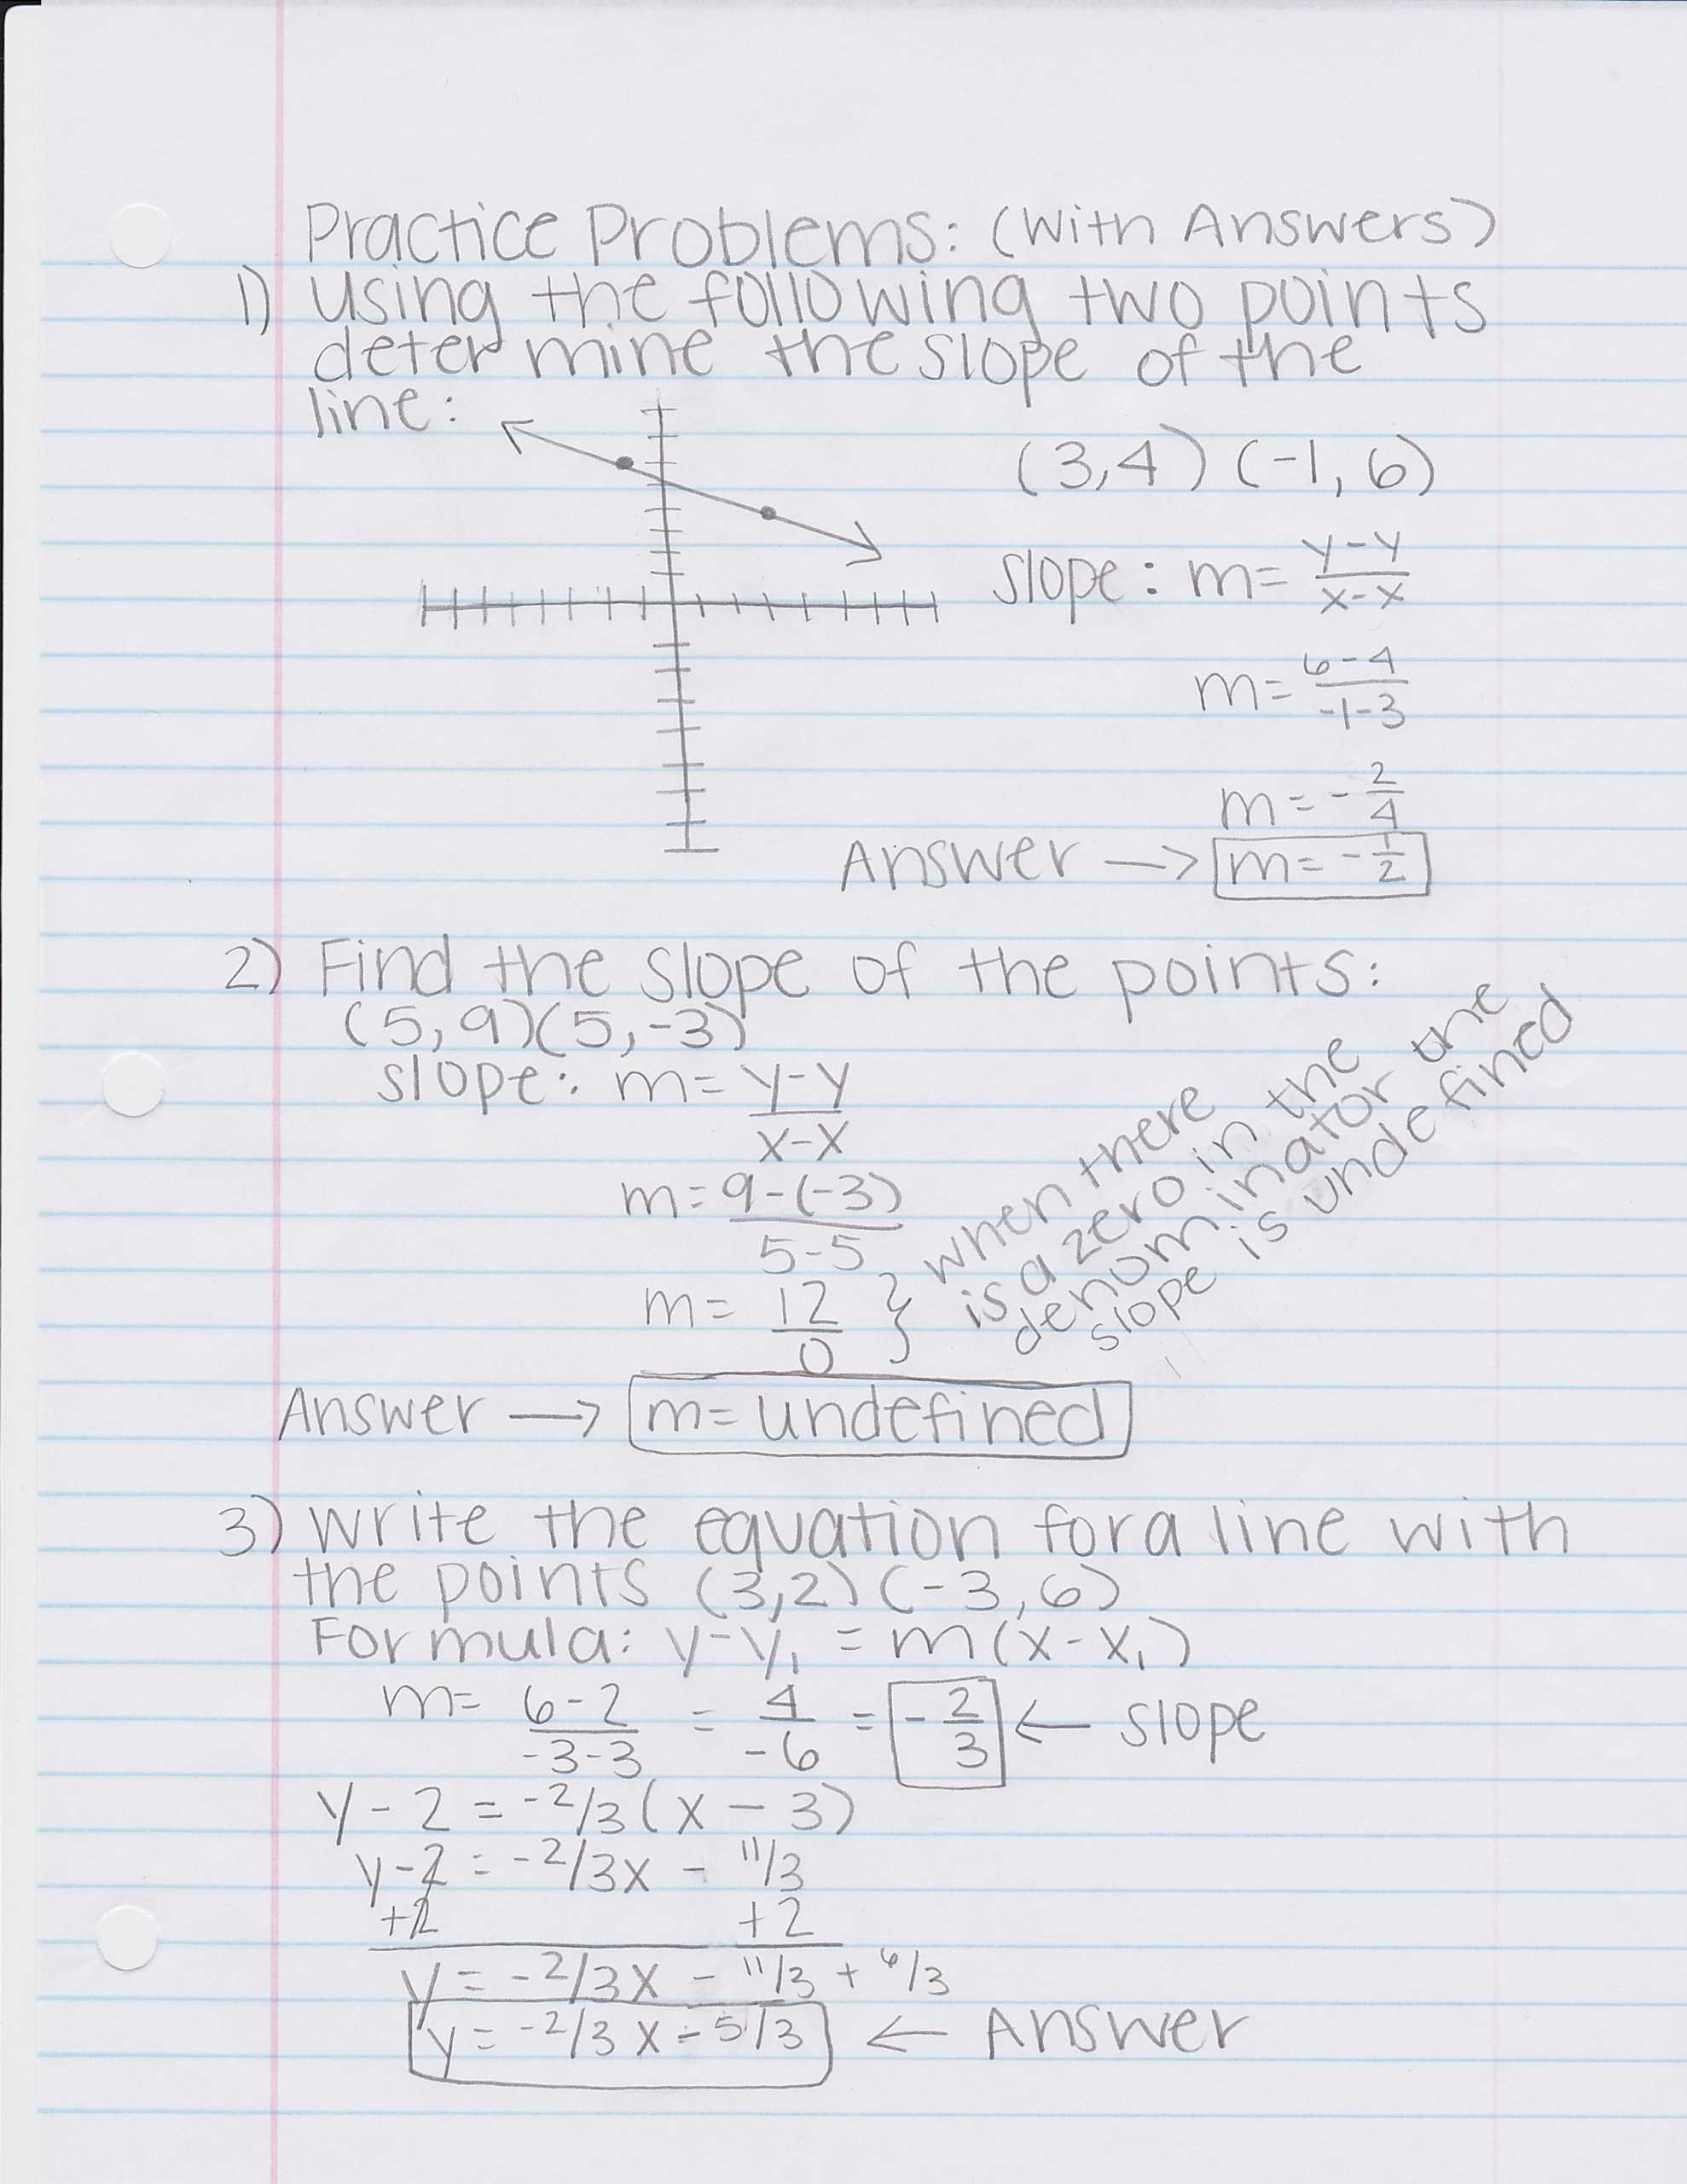 Practice Problems: (With Answers)
1) Using the following two points
determine the slope of the
line:
(3,4) (-1, 6)
slope: m= y-y/x-x
m= 6-4/-1-3
m= - 2/4
Answer → m= - 1/2
2) Find the slope of the points:
(5, 9)(5, -3)
slope: m= y-y/x-x
m= 9-(-3)/5-5
m= 12/0 } when there
is a zero in the
denominator the
slope is undefined
Answer → m= undefined
3) Write the equation for a line with
the points (3,2) (-3,6)
Formula: y-y₁ = m(x-x₁)
m= 6-2/-3-3 = 4/-6 = - 2/3 ← slope
y - 2 = -2/3(x - 3)
y-2 = -2/3x - 11/3
+2 +2
y = -2/3x - 11/3 + 6/3
y = -2/3x - 5/3 ← Answer